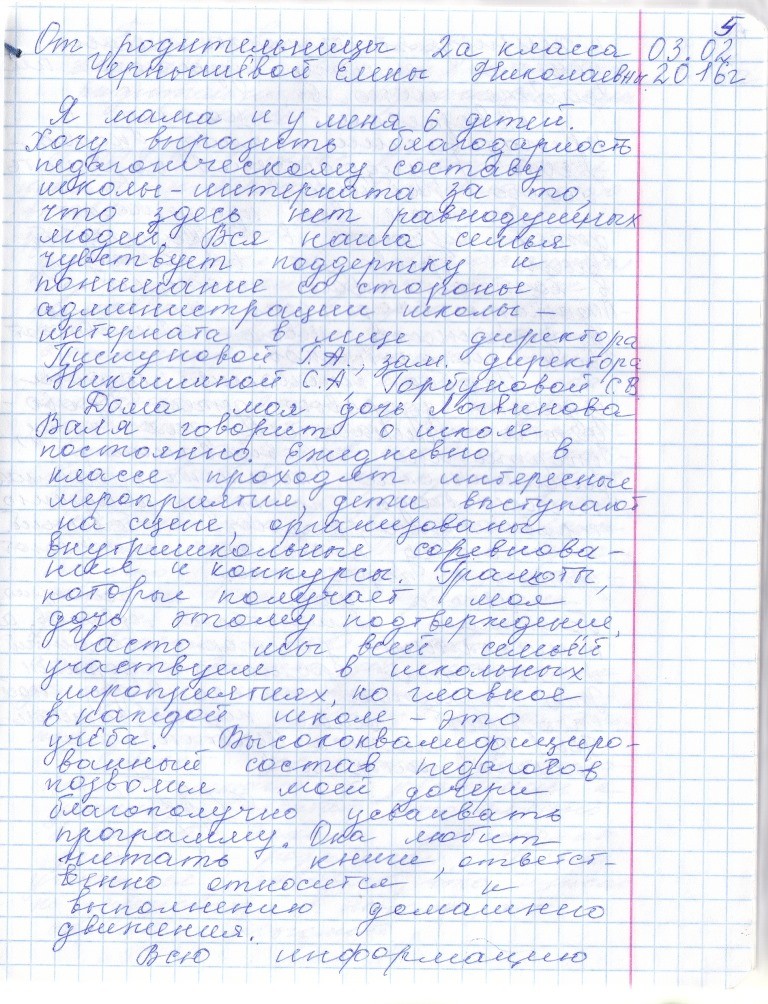 5
От родительницы 2а класса 03.02
Чернышёвой Елены Николаевны 2016г
Я мама и у меня 6 детей.
Хочу выразить благодарность
педагогическому составу
школы-интерната за то,
что здесь нет равнодушных
людей. Вся наша семья
чувствует поддержку и
понимание со стороны
администрации школы –
интерната в лице директора
Писчуновой Г.А., зам. директора
Никишиной С.А, Горбуновой С.В.
Дома моя дочь Логвинова
Валя говорит о школе
постоянно. Ежедневно в
классе проходят интересные
мероприятия, дети выступают
на сцене, организованы
внутришкольные соревнова-
ния и конкурсы. Грамоты,
которые получает моя
дочь этому подтверждение.
Часто мы всей семьёй
участвуем в школьных
мероприятиях, но главное
в каждой школе – это
учёба. Высококвалифициро-
ванный состав педагогов
позволил моей дочери
благополучно усваивать
программу. Она любит
читать книги, ответст-
венно относится к
выполнению домашнего
движения.
Всю информацию